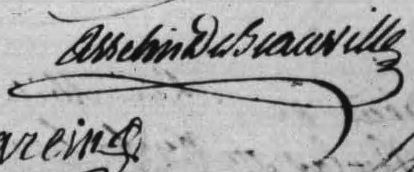 Asselin DeBeauville
areing